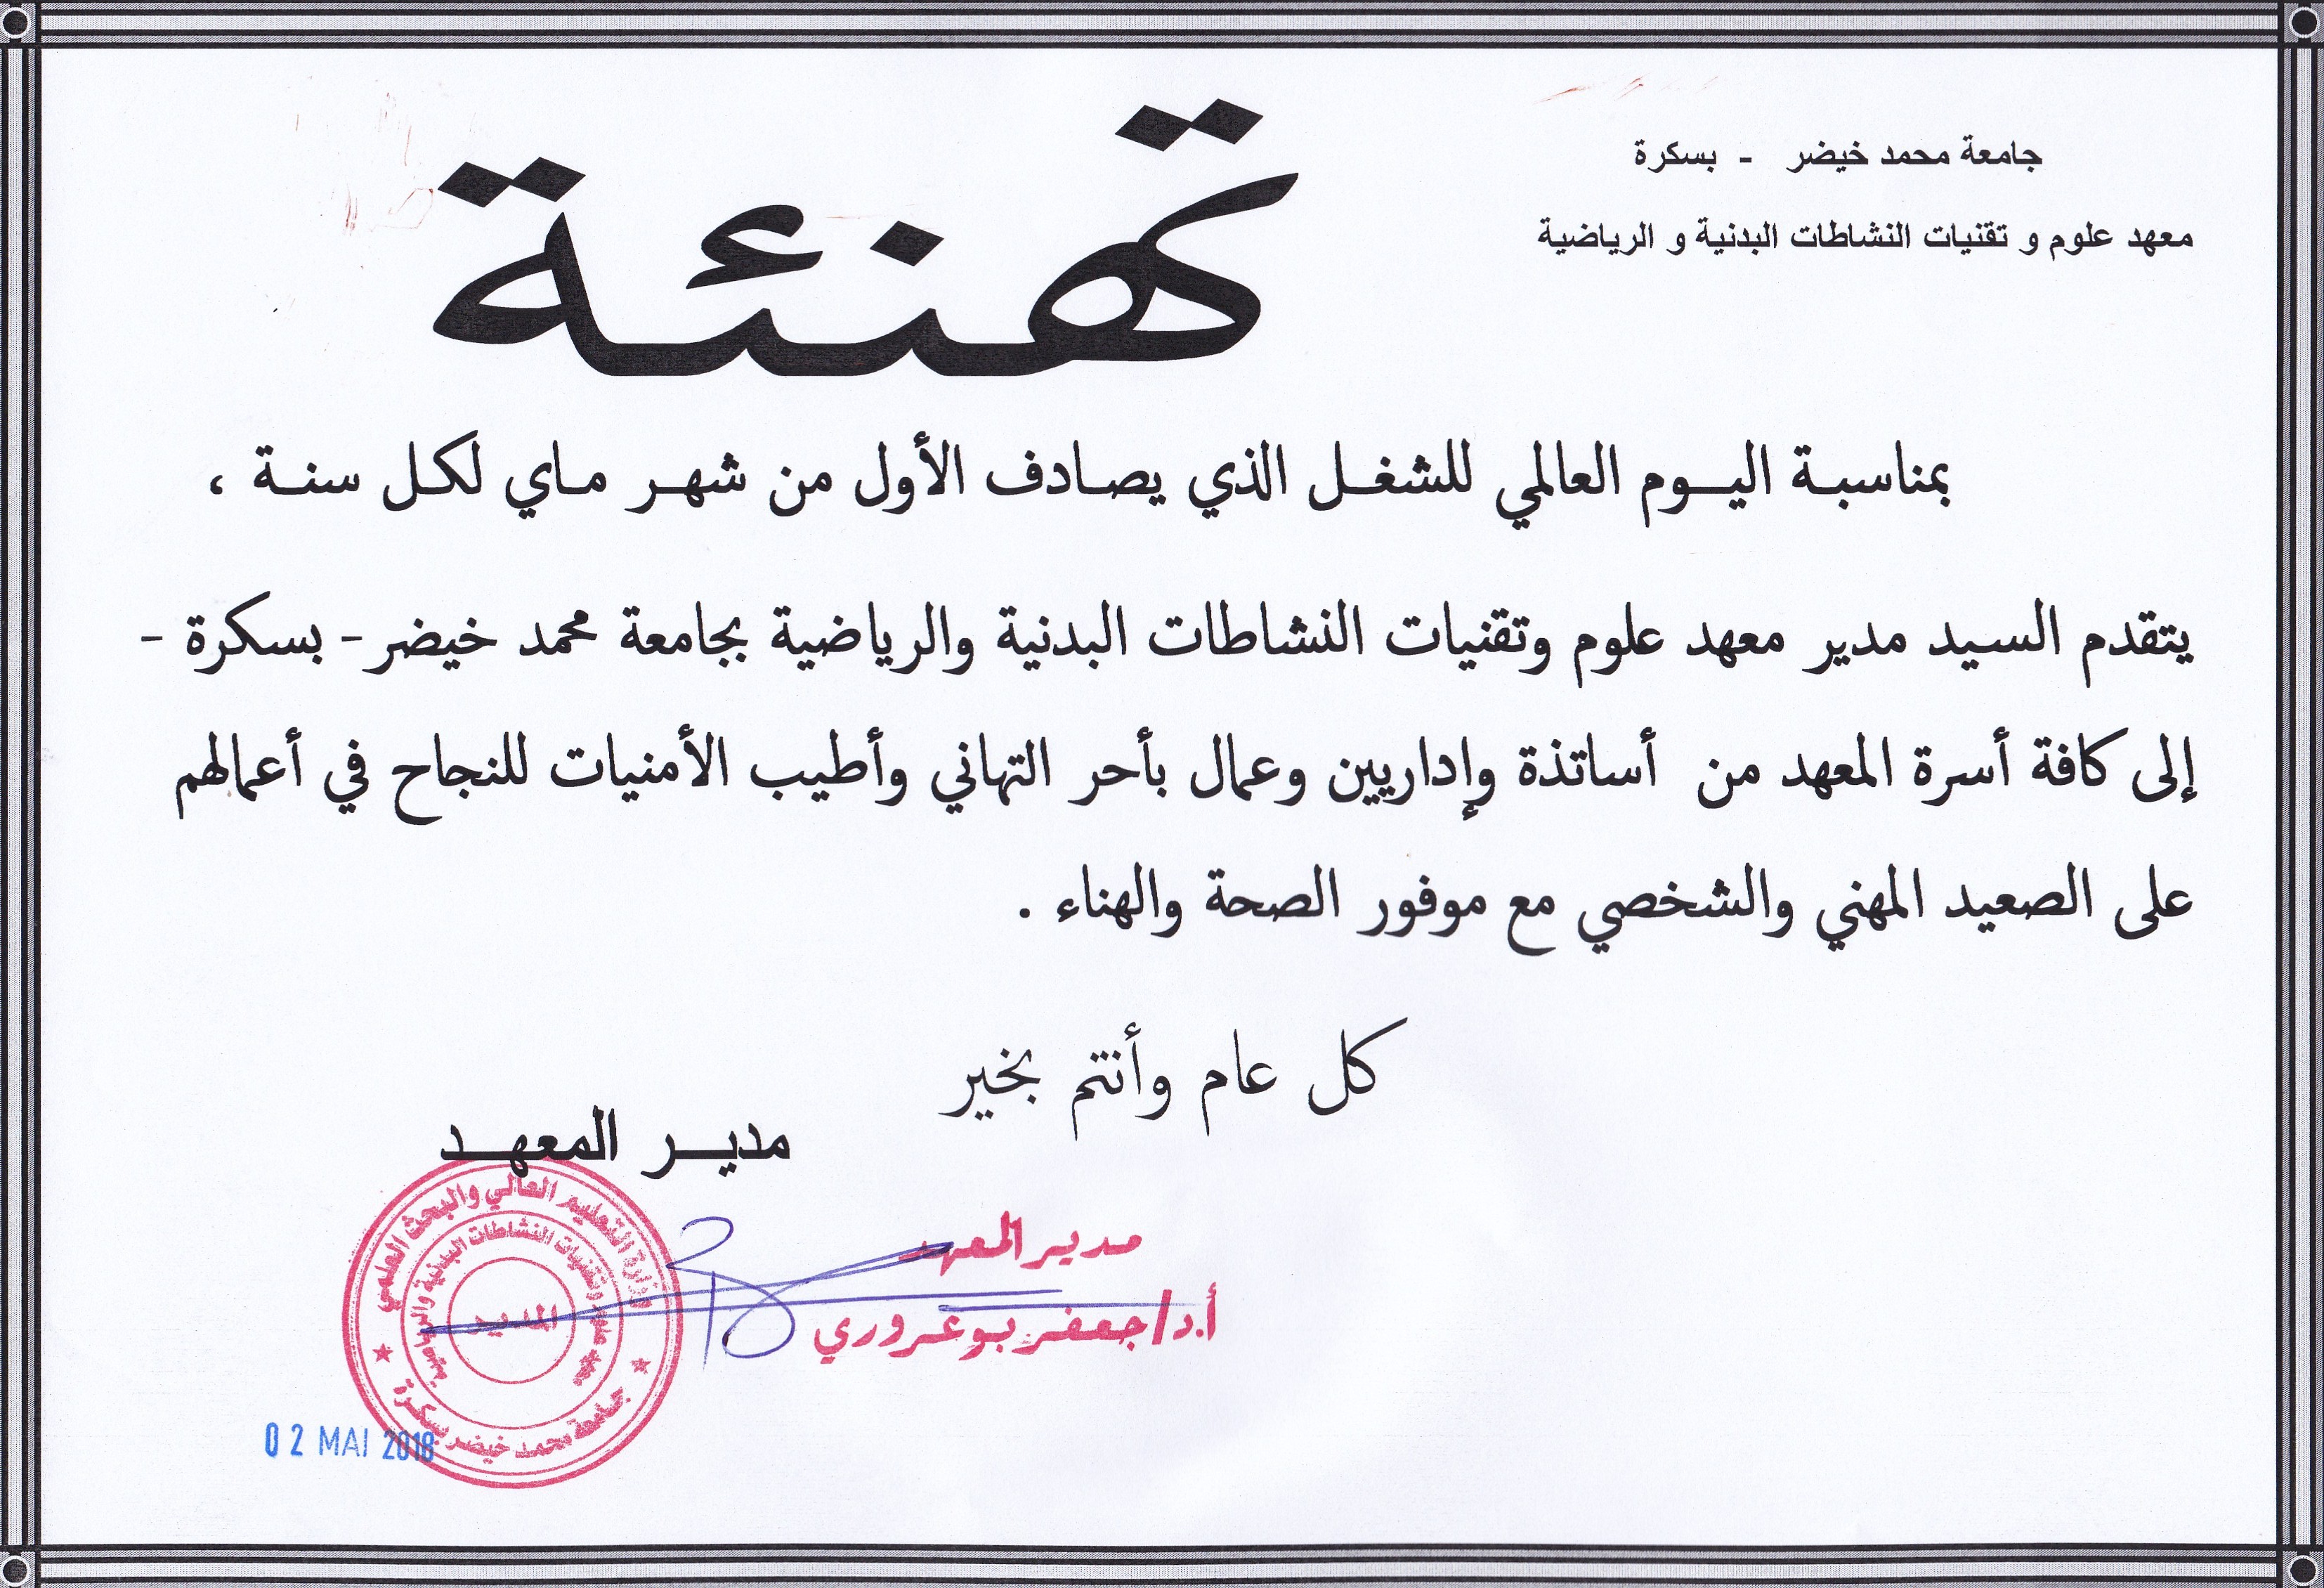 جامعة محمد خيضر - بسكرة
معهد علوم و تقنيات النشاطات البدنية و الرياضية
تهنئة
بمناسبة اليوم العالمي للشغل الذي يصادف الأول من شهر ماي لكل سنة ،
يتقدم السيد مدير معهد علوم وتقنيات النشاطات البدنية والرياضية بجامعة محمد خيضر - بسكرة -
إلى كافة أسرة المعهد من أساتذة وإداريين وعمال بأحر التهاني وأطيب الأمنيات للنجاح في أعمالهم
على الصعيد المهني والشخصي مع موفور الصحة والهناء .
كل عام وأنتم بخير
مدير المعهد
مدير المعهد
أ.د/جعفر بوعروري
وزارة التعليم العالي والبحث العلمي
معهد علوم وتقنيات النشاطات البدنية والرياضية
المدير
جامعة محمد خيضر بسكرة
02 MAI 2018